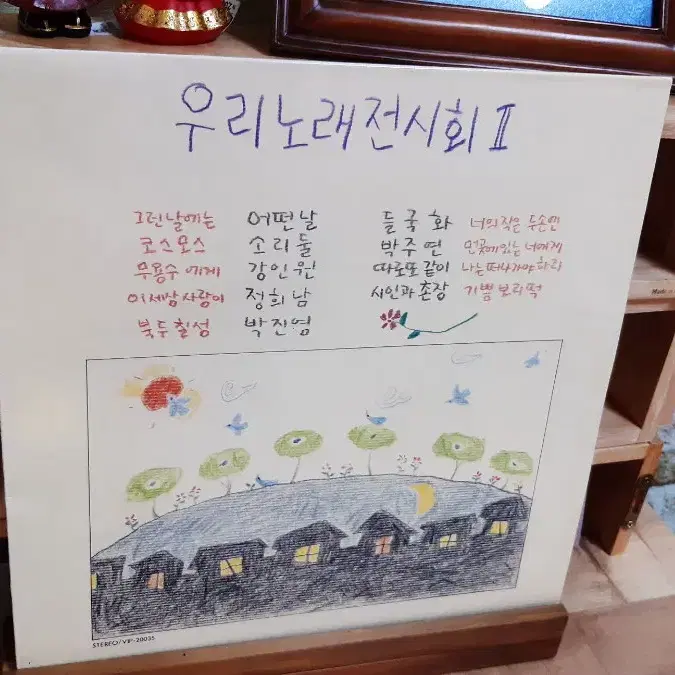 우리노래전시회 II
그런날에는 어떤날
코스모스 소리둘
무용수에게 강인원
이세상사랑이 정희남
북두칠성 박진영
들국화 너의작은두손엔
박주연 먼곳에있는너에게
따로또같이 나는떠나가야하리
시인과촌장 기쁨보리떡
STEREO/VIP-20035